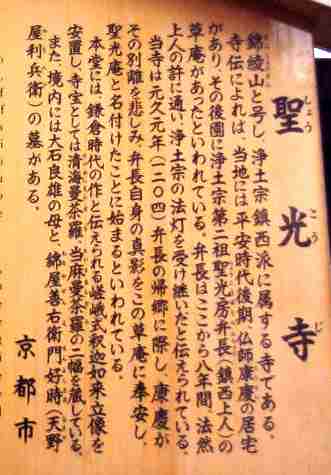 聖光寺
しょうこうじ
錦綾山と号し、浄土宗鎮西派に属する寺である。
寺伝によれば、当地には平安時代後期、仏師康慶の居宅
があり、その後園に浄土宗第二祖聖光房弁長(鎮西上人)の
草庵があったといわれている。弁長はここから八年間、法然
上人の許に通い、浄土宗の法灯を受け継いだと伝えられている。
当寺は元久元年(一二〇四)弁長の帰郷に際し、康慶が
その別離を悲しみ、弁長自身の真影をこの草庵に奉安し、
聖光庵と名付けたことに始まるといわれている。
本堂には、鎌倉時代の作と伝えられる嵯峨式釈迦如来立像を
安置し、寺宝としては清海曼荼羅、当麻曼荼羅の二幅を蔵している。
また、境内には大石良雄の母と、綿屋善右衛門好時(天野
屋利兵衛)の墓がある。
京都市